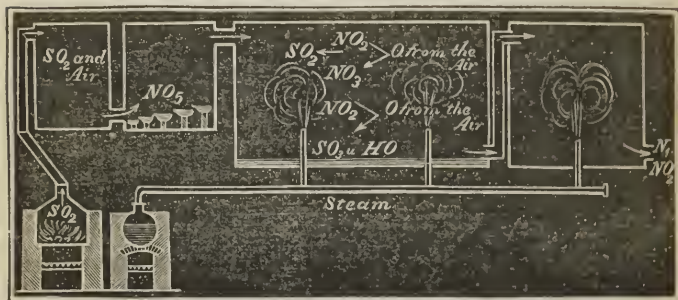 SO₂ and
Air
NO₅
NO₂
SO₂
O from the
Air
NO₃
NO₂
O from the
Air
SO₃ u HO
N,
NO₂
Steam
SO₂